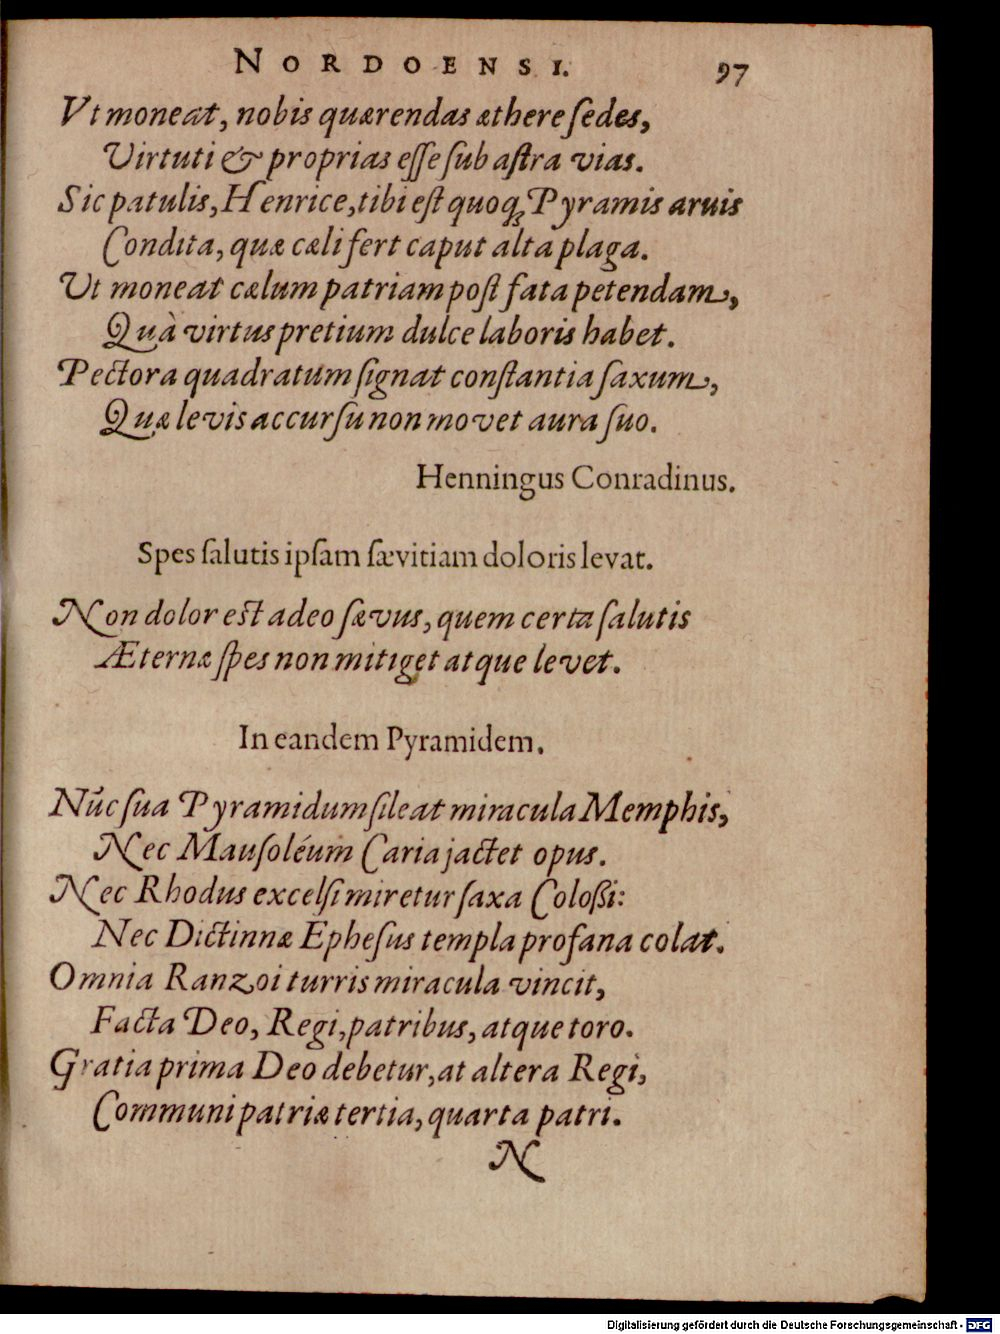 NORDOENSI. 97
Vt moneat, nobis quærendas æthere ſedes,
Virtuti & proprias eſſe ſub aſtra vias.
Sic patulis, Henrice, tibi eſt quoq; Pyramis aruis
Condita, quæ cæli fert caput alta plaga.
Ut moneat cælum patriam poſt fata petendam,
Quà virtus pretium dulce laboris habet.
Pectora quadratum ſignat conſtantia ſaxum,
Quæ levis accurſu non movet aura ſuo.
Henningus Conradinus.
Spes ſalutis ipſam ſævitiam doloris levat.
Non dolor est adeo ſævus, quem certa ſalutis
Æternæ ſpes non mitiget atque levet.
In eandem Pyramidem.
Nūc ſua Pyramidum ſileat miracula Memphis,
Nec Mauſoléum Caria jactet opus.
Nec Rhodus excelſi miretur ſaxa Coloßi:
Nec Dictinnæ Epheſus templa profana colat.
Omnia Ranzoi turris miracula vincit,
Facta Deo, Regi, patribus, atque toro.
Gratia prima Deo debetur, at altera Regi,
Communi patriæ tertia, quarta patri.
N
Digitalisierung gefördert durch die Deutsche Forschungsgemeinschaft - DFG